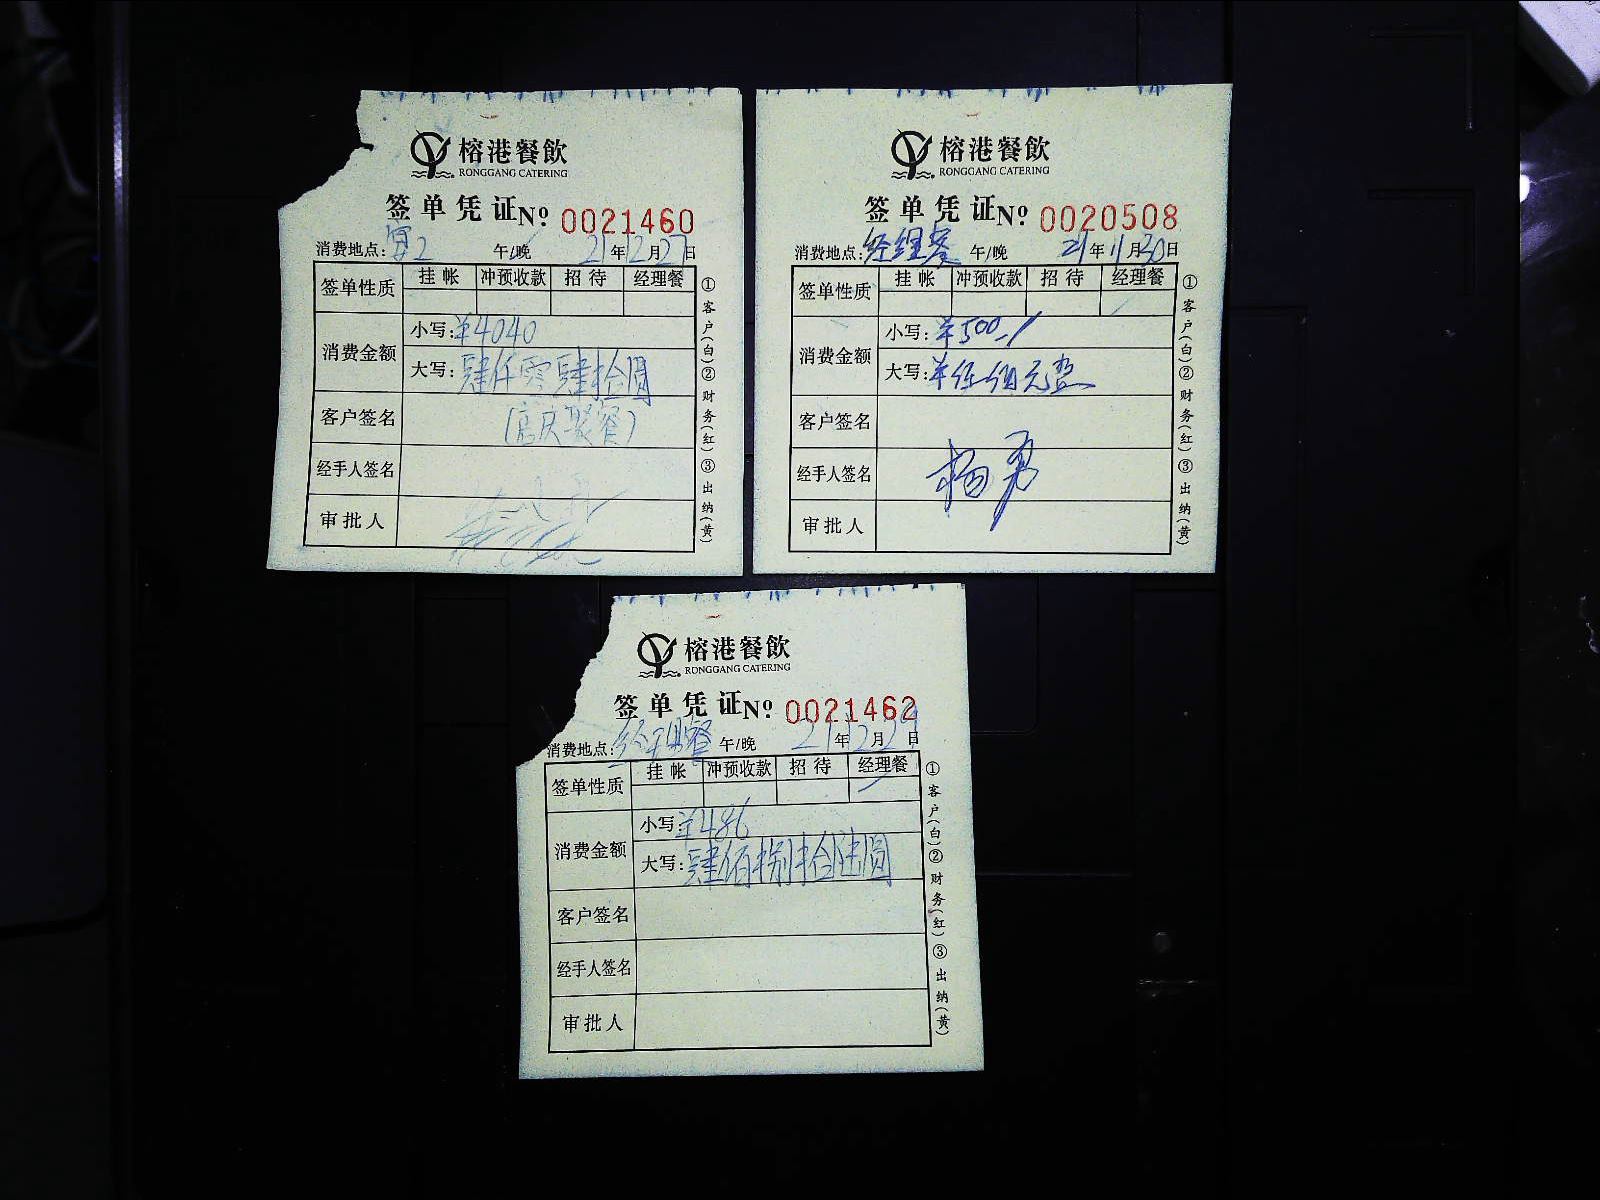 榕港餐飲
RONGGANG CATERING
签单凭证 Nº 0021460
消费地点: 宴2 午/晚 21年12月27日
签单性质 挂帐 冲预收款 招待 经理餐
消费金额
小写: ¥4040
大写: 肆仟零肆拾圆
客户签名 (店庆聚餐)
经手人签名
审批人
①客户(白)②财务(红)③出纳(黄)
榕港餐飲
RONGGANG CATERING
签单凭证 Nº 0020508
消费地点: 经理餐 午/晚 21年11月30日
签单性质 挂帐 冲预收款 招待 经理餐
消费金额
小写: ¥500-
大写: ¥伍佰元整
客户签名
经手人签名 杨勇
审批人
①客户(白)②财务(红)③出纳(黄)
榕港餐飲
RONGGANG CATERING
签单凭证 Nº 0021462
消费地点: 经理餐 午/晚 21年12月29日
签单性质 挂帐 冲预收款 招待 经理餐
消费金额
小写: ¥486
大写: 肆佰捌拾陆圆
客户签名
经手人签名
审批人
①客户(白)②财务(红)③出纳(黄)